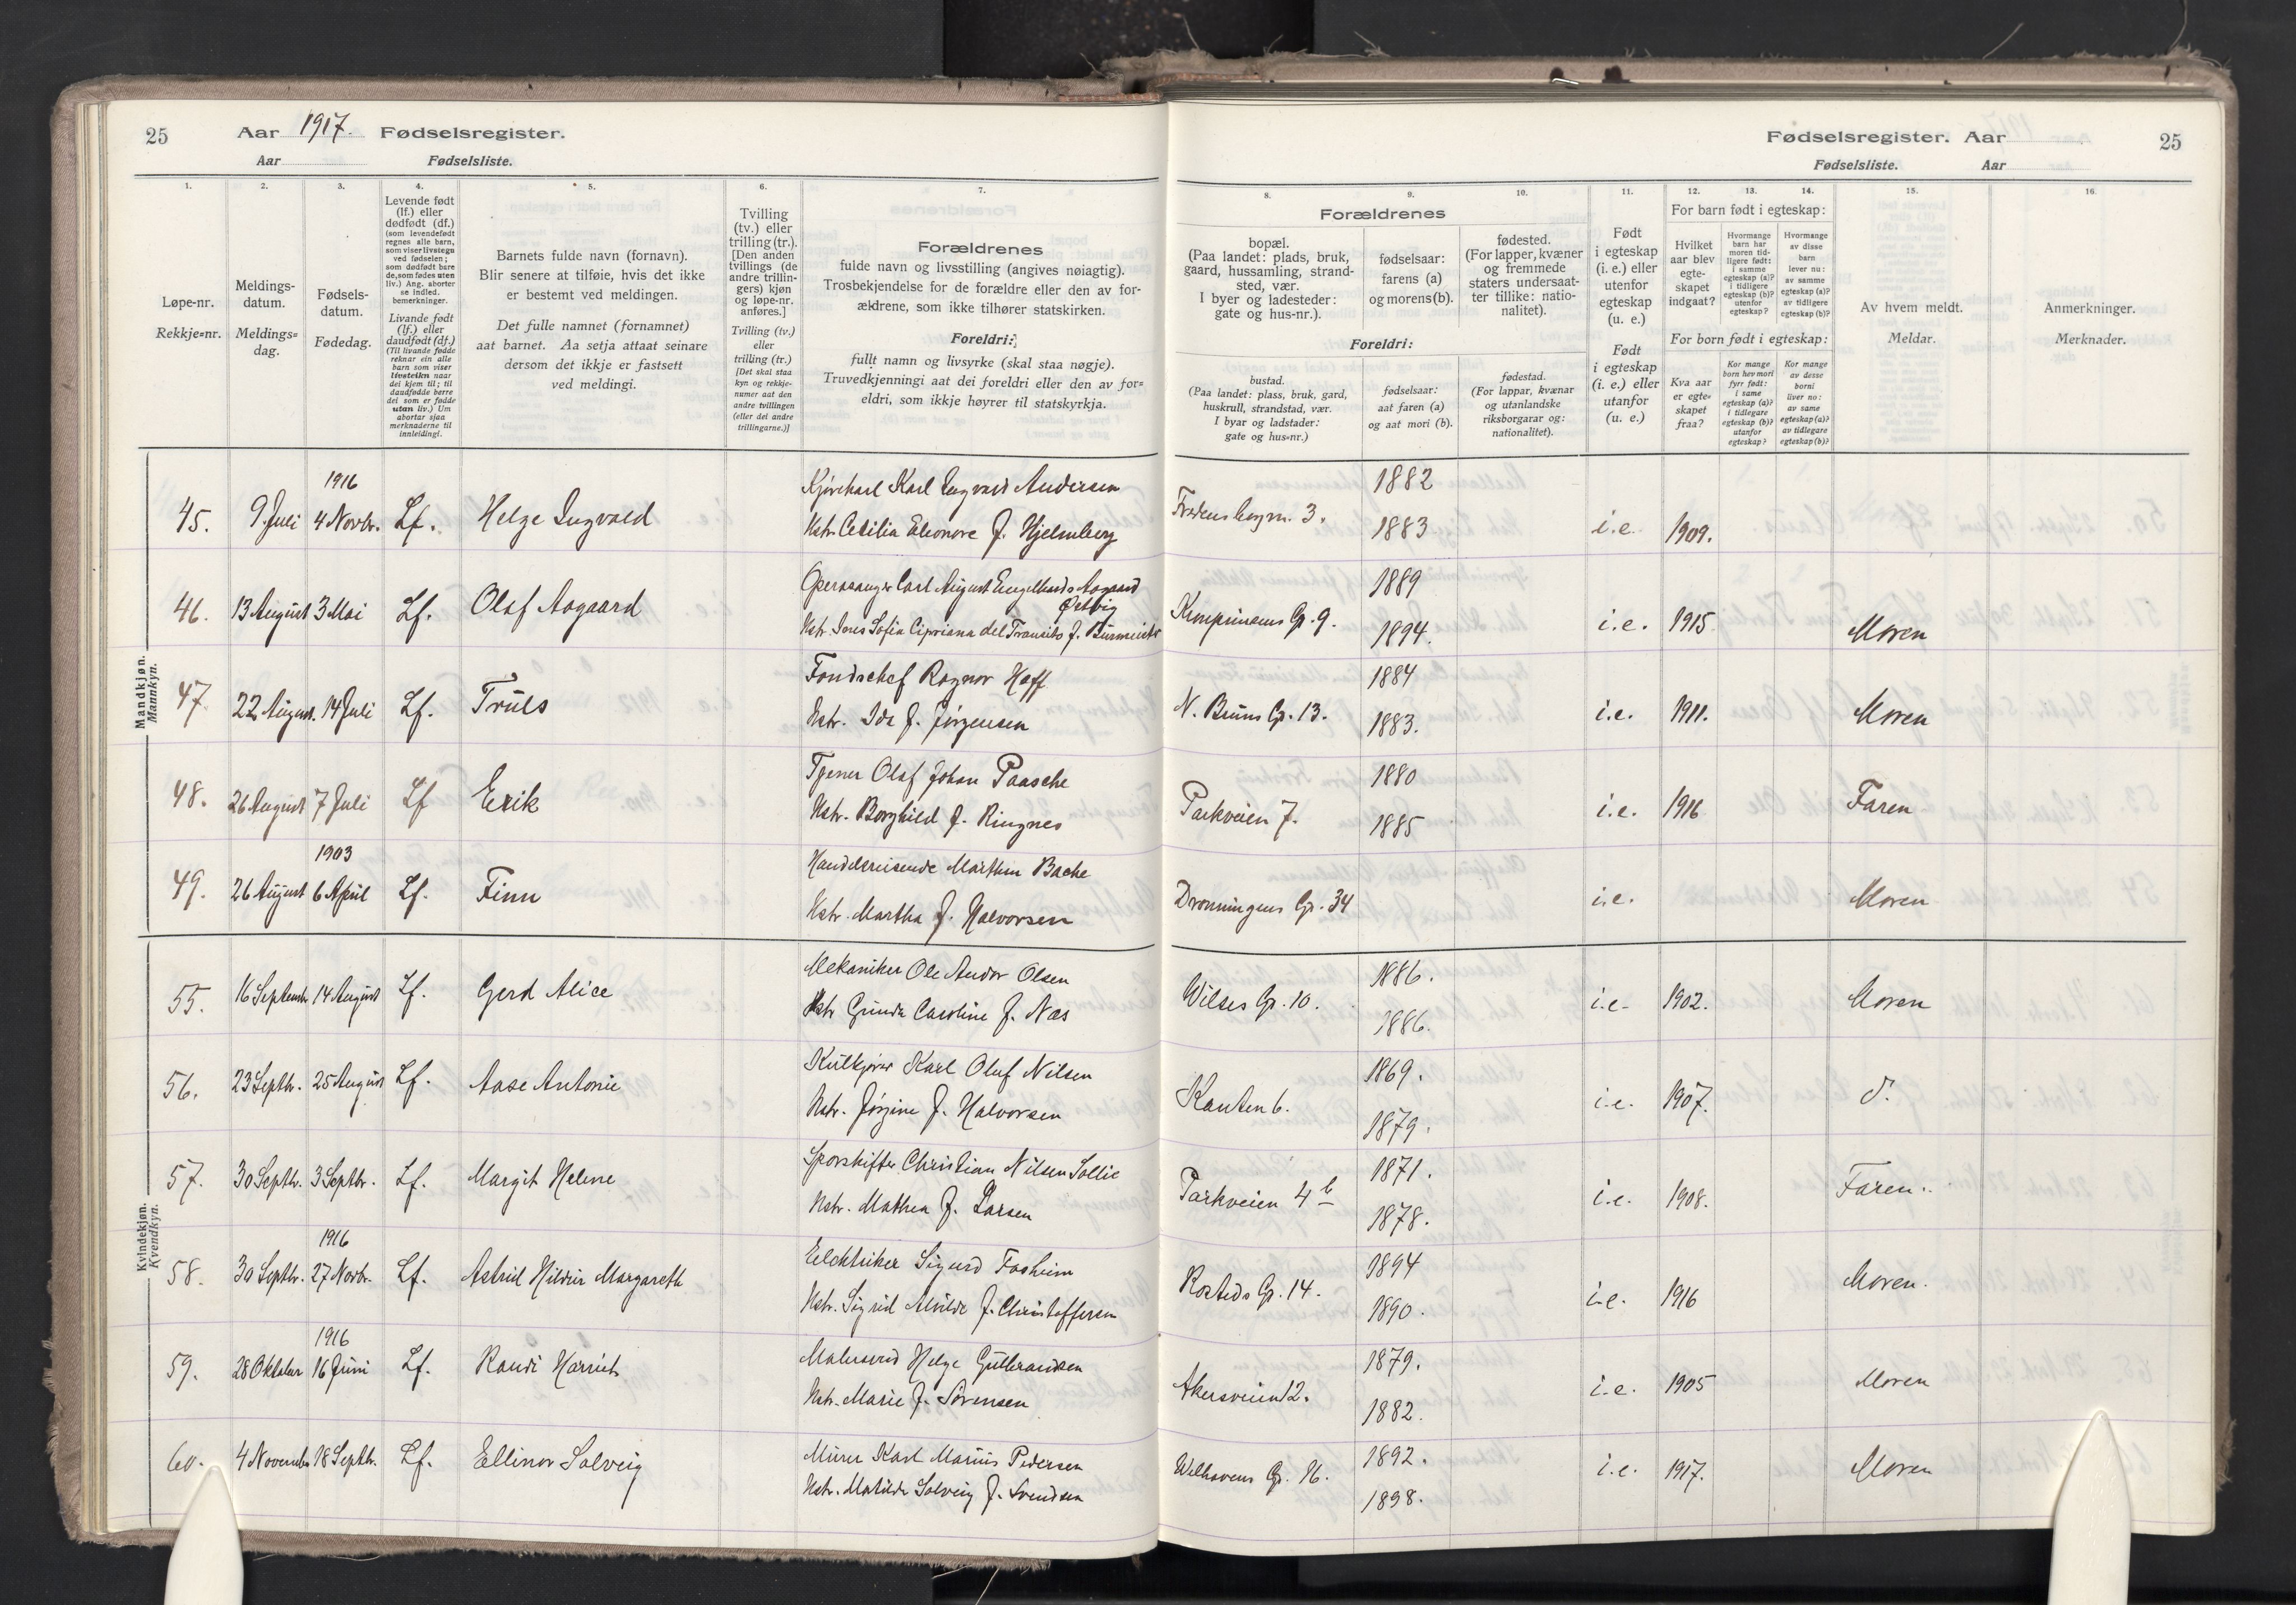 25
Aar 1917. Fødselsregister.
Aar Fødselsliste.
Fødselsregister. Aar
25
Fødselsliste. Aar
1.
Løpe-nr.
Rekkje=nr.
2.
Meldings-
datum.
Meldings=
dag.
3.
Fødsels-
datum.
Fødedag.
4.
Levende født
(lf.) eller
dødfødt (df.)
(som levendefødt
regnes alle barn,
som viser livstegn
ved fødselen;
som dødfødt bare
de, som fødes uten
liv.) Ang. aborter
se indled.
bemerkninger.
Livande født
(lf.) eller
daudfødt (df.)
(Til livande fødde
reknar ein alle
barn som viser
livsteikn naar
dei kjem til; til
daudfødde berre
dei som er fødde
utan liv.) Um
abortar sjaa
merknaderne til
innleidingi.
5.
Barnets fulde navn (fornavn).
Blir senere at tilføie, hvis det ikke
er bestemt ved meldingen.
Det fulle namnet (fornamnet)
aat barnet. Aa setja attaat seinare
dersom det ikkje er fastsett
ved meldingi.
6.
Tvilling
(tv.) eller
trilling (tr.).
[Den anden
tvillings (de
andre trillin-
gers) kjøn
og løpe-nr.
anføres.]
Tvilling (tv.)
eller
trilling (tr.)
[Det skal staa
kyn og rekkje-
numer aat den
andre tvillingen
(eller dei andre
trillingarne.)]
7.
Forældrenes
fulde navn og livsstilling (angives nøiagtig).
Trosbekjendelse for de forældre eller den av for-
ældrene, som ikke tilhører statskirken.
Foreldri:
fullt namn og livsyrke (skal staa nøgje).
Truvedkjenningi aat dei foreldri eller den av for=
eldri, som ikkje høyrer til statskyrkja.
8.
Forældrenes
bopæl.
(Paa landet: plads, bruk,
gaard, hussamling, strand-
sted, vær.
I byer og ladesteder:
gate og hus-nr.).
Foreldri:
bustad.
(Paa landet: plass, bruk, gard,
huskrull, strandstad, vær.
I byar og ladstader:
gate og hus=nr.)
9.
fødselsaar:
farens (a)
og morens (b).
fødselsaar:
aat faren (a)
og aat mori (b).
10.
fødested.
(For lapper, kvæner
og fremmede
staters undersaat-
ter tillike: natio-
nalitet).
fødestad.
(For lappar, kvænar
og utanlandske
riksborgarar og:
nationalitet).
11.
Født
i egteskap
(i. e.) eller
utenfor
egteskap
(u. e.)
Født
i egteskap
(i. e.) eller
utanfor
(u. e.)
12. 13. 14.
For barn født i egteskap:
Hvilket
aar blev
egte-
skapet
indgaat?
Hvormange
barn har
moren tid-
ligere født:
i samme
egteskap (a)?
i tidligere
egteskap (b)?
utenfor
egteskap?
Hvormange
av disse
barn
lever nu:
av samme
egteskap (a)?
av tidligere
egteskap (b)?
For born født i egteskap:
Kva aar
er egte=
skapet
fraa?
Kor mange
born hev mori
fyrr født:
i same
egteskap (a)?
i tidlegare
egteskap (b)?
utanfor
egteskap?
Kor mange
av desse
borni
liver no:
av same
egteskap (a)?
av tidlegare
egteskap (b)?
15.
Av hvem meldt.
Meldar.
16.
Anmerkninger.
Merknader.
Mandkjøn.
Mannkyn.
1916
45. 9. Juli 4 Novbr. Lf. Helge Ingvald
Karl Ingvald Andersen
Hstr. Cecilia Eleonore f. Hjelmberg
3. 1882
1883 i.e. 1909.
46. 13 August 3 Mai Lf. Olaf Aagaard
Operasanger Carl August Engelhardt Aagaard
Østvig
Hstr. Ines Sofia Cipriana del f.
Gt. 9. 1889
1894. i.e. 1915 Moren
47. 22 August. 14 Juli Lf. Truls
Fondschef Ragnar Hoff
Hstr. Ida f. Jørgensen
N. Bruns Gt. 13. 1884
1883. i.e. 1911. Moren
48. 26 August 7 Juli Lf Erik
Olaf Johan Paasche
Hstr. Borghild f. Ringnes
Parkveien 7. 1880
1885 i.e. 1916 Faren
1903
49. 26 August 6 April Lf. Finn
Handelsreisende Marthin Bache
Hstr. Martha f. Halvorsen
Dronningens Gt. 34 i.e. Moren
Kvindekjøn.
Kvendkyn.
55. 16 Septembr 14 August Lf. Gerd Alice
Mekaniker Ole Andor Olsen
Hstr Gunda Caroline f. Næs
Wilses Gt. 10. 1886.
1886. i.e. 1902. Moren
56. 23 Septbr. 25 August Lf. Aase Antonie
Kulkjører Karl Oluf Nilsen
Hstr. Jørgine f. Halvorsen
Kanten 6. 1869.
1879. i.e. 1907. d.
57. 30 Septbr. 3 Septbr. Lf. Margit Helene
Sporskifter Christian Nilsen Sollie
Hstr. Mathea f. Larsen
Parkveien 4 b 1871.
1878. i.e. 1908. Faren.
1916
58. 30 Septbr. 27 Novbr. Lf. Astrid Hildur Margareth
Elektriker Sigurd Fosheim
Hstr. Sigrid Alvilde f. Christoffersen
Rosteds Gt. 14. 1894
1890. i.e. 1916 Moren.
1916
59. 28 Oktober 16 Juni Lf. Randi Harriet
Malersvend Helge Gulbrandsen
Hstr. Marie f. Sørensen
Akersveien 12. 1879.
1882. i.e. 1905 Moren
60. 4 November 18 Septbr. Lf. Ellinor Solveig
Murer Karl Marius Pedersen
Hstr. Matilde Solveig f. Svendsen
Welhavens Gt. 16. 1892.
1898. i.e. 1917. Moren